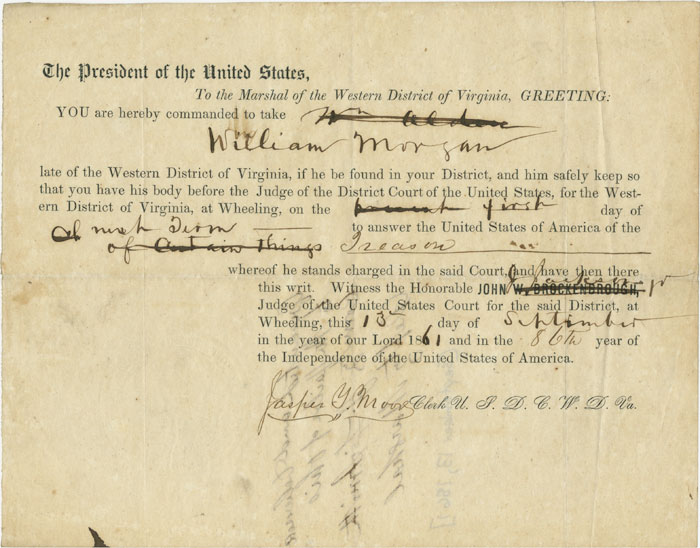 The President of the United States,
To the Marshal of the Western District of Virginia, GREETING:
YOU are hereby commanded to take Wm Alden
William Morgan
late of the Western District of Virginia, if he be found in your District, and him safely keep so
that you have his body before the Judge of the District Court of the United States, for the West-
ern District of Virginia, at Wheeling, on the present first day of
next Term to answer the United States of America of the
of Certain Things Treason
whereof he stands charged in the said Court, and have then there
this writ. Witness the Honorable JOHN W. BROCKENBROUGH, Jr
Judge of the United States Court for the said District, at
Wheeling, this 13 day of September
in the year of our Lord 1861 and in the 86th year of
the Independence of the United States of America.
Jasper Y. Moor Clerk U. S. D. C. W. D. Va.